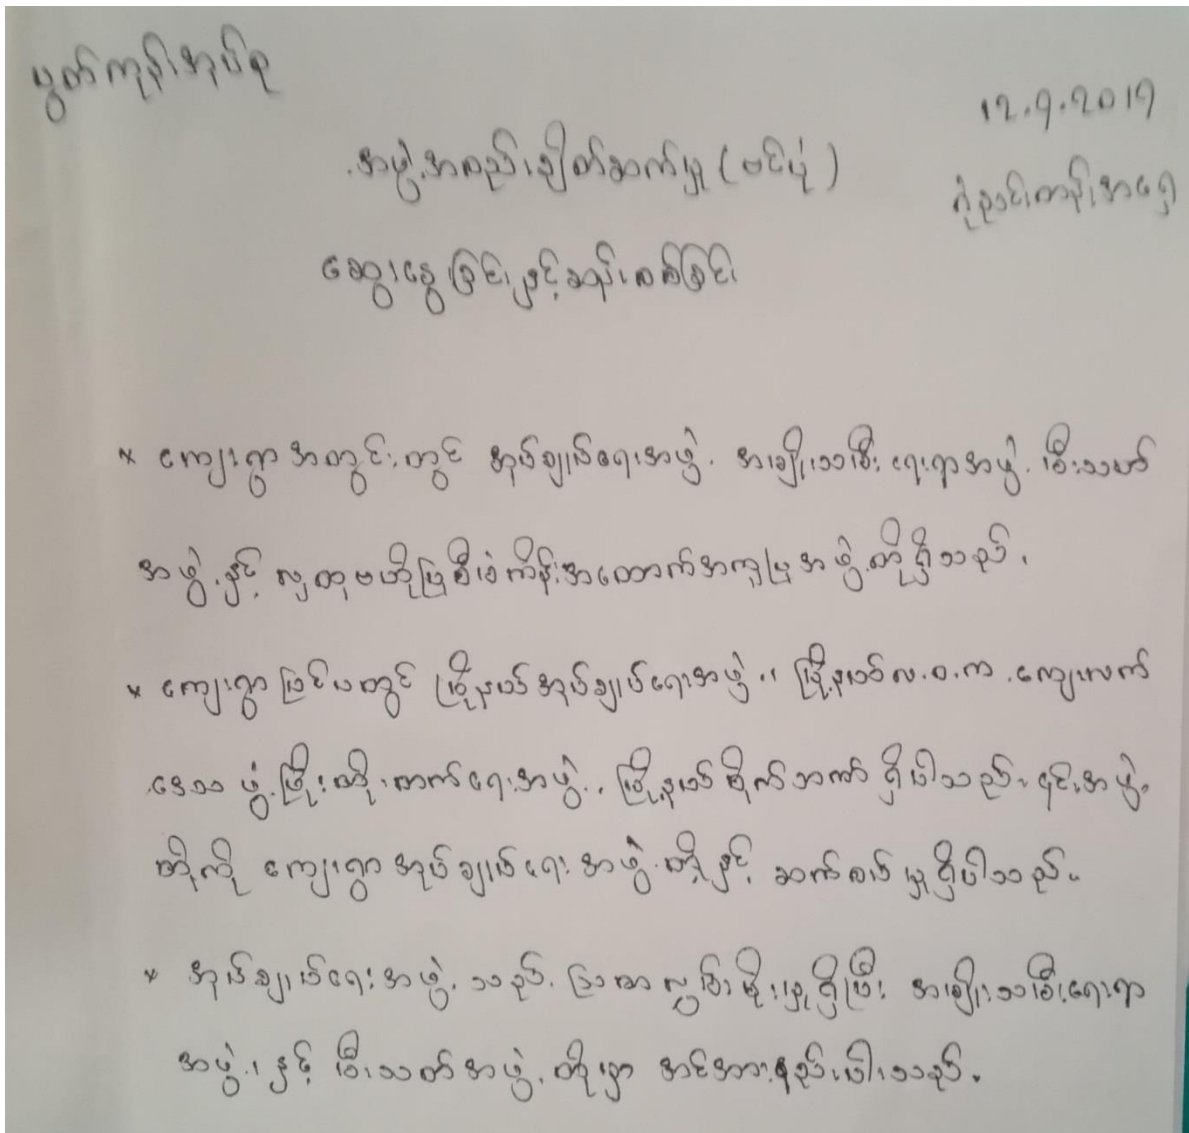 မွတ်ကုန်းအုပ်စု
12.9.2019
အဖွဲ့အစည်းချိတ်ဆက်မှု (ဗင်ပုံ)
ညောင်ကန်အရှေ့
ဆွေးနွေးခြင်းနှင့်ဆန်းစစ်ခြင်း
* ကျေးရွာအတွင်းတွင် အုပ်ချုပ်ရေးအဖွဲ့. အမျိုးသမီးရေးရာအဖွဲ့. မီးသတ်
အဖွဲ့နှင့် လူထုဗဟိုပြုစီမံကိန်းအထောက်အကူပြုအဖွဲ့တို့ရှိသည်.
* ကျေးရွာပြင်ပတွင် မြို့နယ်အုပ်ချုပ်ရေးအဖွဲ့၊ မြို့နယ်လ.ဝ.က .ကျေးလက်
ဒေသဖွံ့ဖြိုးတိုးတက်ရေးအဖွဲ့. မြို့နယ်စိုက်ဘဏ်ရှိပါသည်. ၎င်းအဖွဲ့
တို့ကို ကျေးရွာအုပ်ချုပ်ရေးအဖွဲ့တို့နှင့် ဆက်စပ်မှုရှိပါသည်.
* အုပ်ချုပ်ရေးအဖွဲ့သည် ဩဇာလွှမ်းမိုးမှုရှိပြီး အမျိုးသမီးရေးရာ
အဖွဲ့၊ နှင့် မီးသတ်အဖွဲ့တို့မှာ အင်အားနည်းပါးသည်.